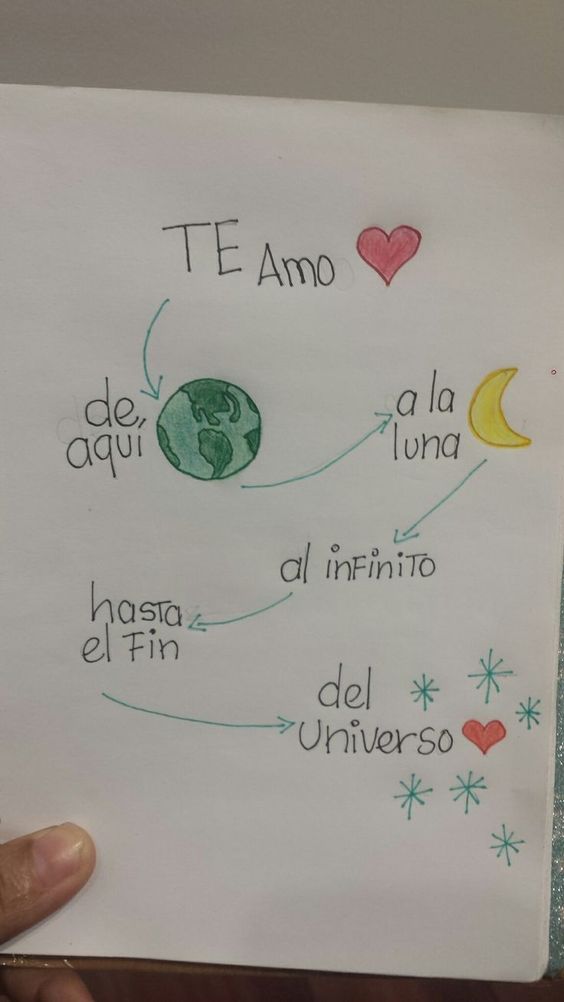 TE Amo
de,
aqui
a la
luna
al infinito
hasta
el Fin
del
Universo